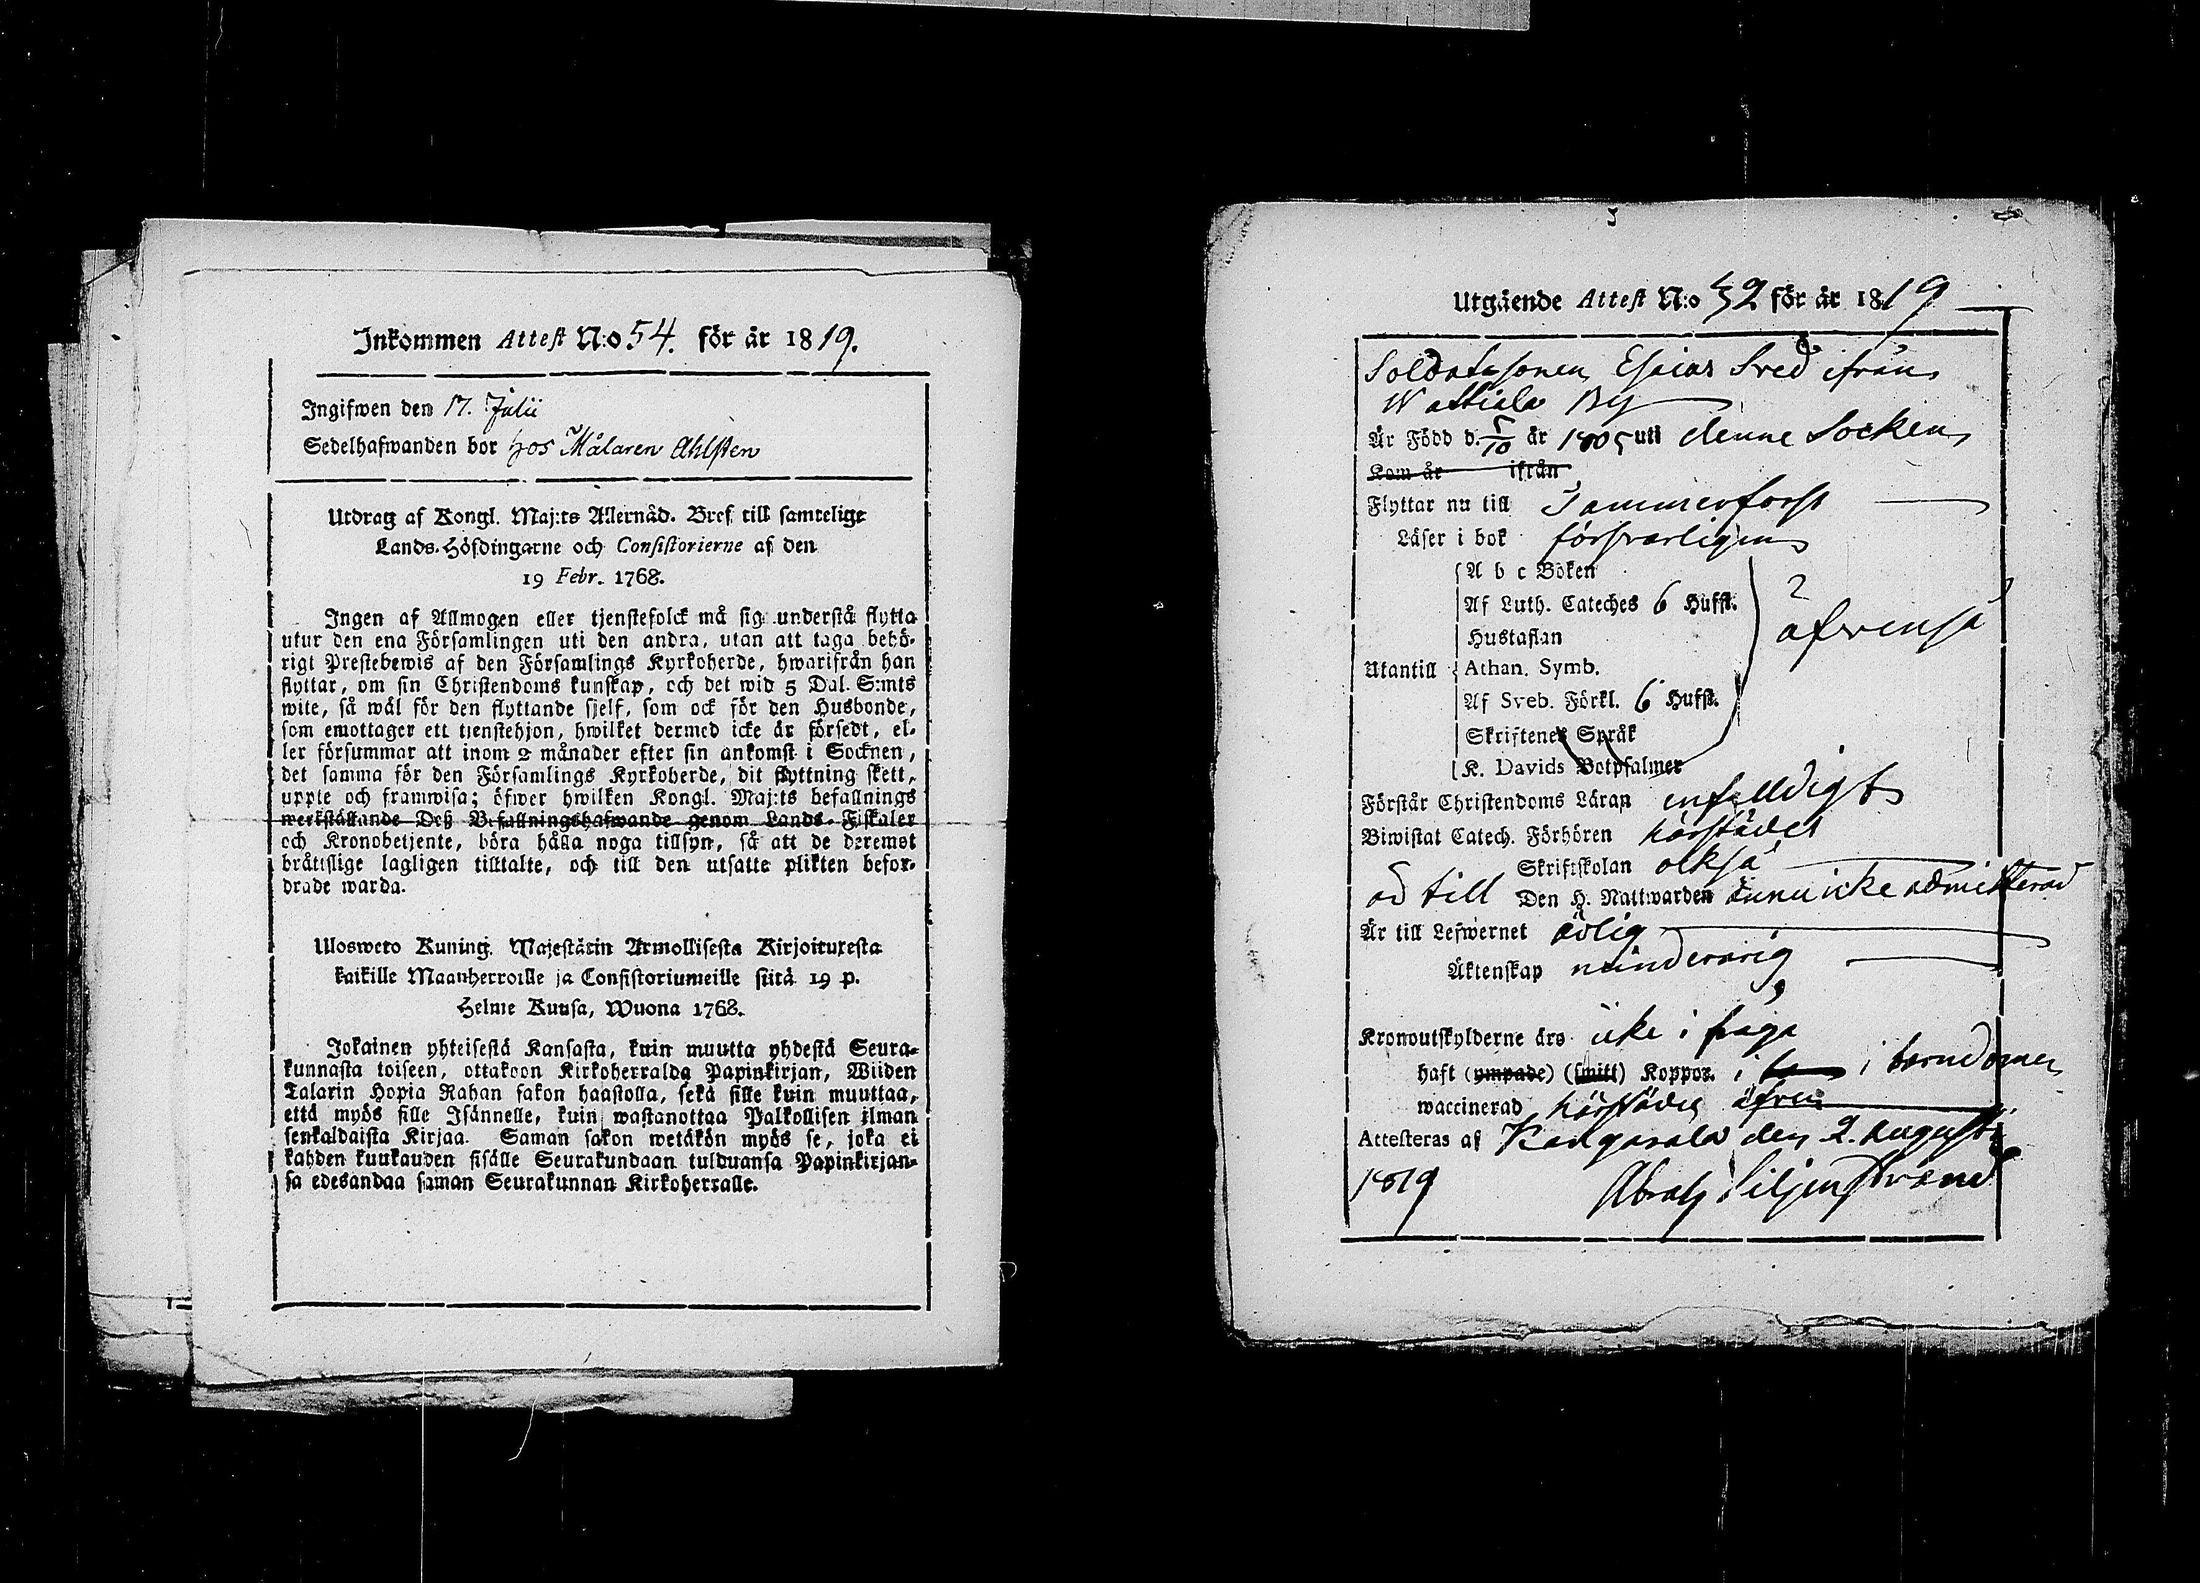 Inkommen Attest N:o 54. för år 1819.
Ingifwen den 17. Julii
Sedelhafwanden bor hos Målaren Ahlsten
Utdrag af Kongl. Maj:ts Allernåd. Bref till samtelige
Lands-Höfdingarne och Consistorierne af den
19 Febr. 1768.
Ingen af Allmogen eller tjenstefolck må sig understå flytta
utur den ena Församlingen uti den andra, utan att taga behö-
rigt Prestebewis af den Församlings Kyrkoherde, hwarifrån han
flyttar, om sin Christendoms kunskap, och det wid 5 Dal. S:mts
wite, så wäl för den flyttande sjelf, som ock för den Husbonde,
som emottager ett tjenstehjon, hwilket dermed icke är försedt, el-
ler försummar att inom 2 månader efter sin ankomst i Socknen,
det samma för den Församlings Kyrkoherde, dit flyttning skett,
uppte och framwisa; öfwer hwilken Kongl. Maj:ts befallnings
werkställande Deß Befallningshafwande genom Lands-Fiskaler
och Kronobetjente, böra hålla noga tillsyn, så att de deremot
bråttslige lagligen tilltalte, och till den utsatte plikten befor-
drade warda.
Ulosweto Kuning. Majestätin Armollisesta Kirjoituresta
kaikille Maanherroille ja Consistoriumeille siitä 19 p.
Helme Kuusa, Wuona 1768.
Jokainen yhteisestä Kansasta, kuin muutta yhdestä Seura-
kunnasta toiseen, ottakoon Kirkoherralda Papinkirjan, Wiiden
Talarin Hopia Rahan sakon haastolla, sekä sille kuin muuttaa,
että myös sille Isännelle, kuin wastanottaa Palkollisen ilman
senkaldaista Kirjaa. Saman sakon wetäkön myös se, joka ei
kahden kuukauden sisälle Seurakundaan tulduansa Papinkirjan-
sa edesandaa saman Seurakunnan Kirkoherralle.
Utgående Attest N:o 52 för år 1819
Soldatsonen Esaias Sved ifrån
Wattiala By
Är Född d. 5/10 år 1805 uti denne Socken
Kom år ifrån
Flyttar nu till Tammerfors
Läser i bok försvarligen
A b c Boken
Af Luth. Cateches 6 Hufst.
Hustaflan
Utantill Athan. Symb.
äfvenså
Af Sveb. Förkl. 6 Hufst.
Skriftenes Språk
K. Davids Botpsalmer
Förstår Christendoms Läran enfaldigt
Biwistat Catech. Förhören härstädes
Skriftskolan också
Den H. Nattwarden ännu icke admitterad
ad till
Är till Lefwernet ärlig
Äktenskap minderårig
Kronoutskylderne äro icke i fråga
haft (ympade) (smitt) Koppor. i i barndomen
waccinerad härstädes
Attesteras af Kangasala den 2. Augusti
1819 Abrah Liljenstrand